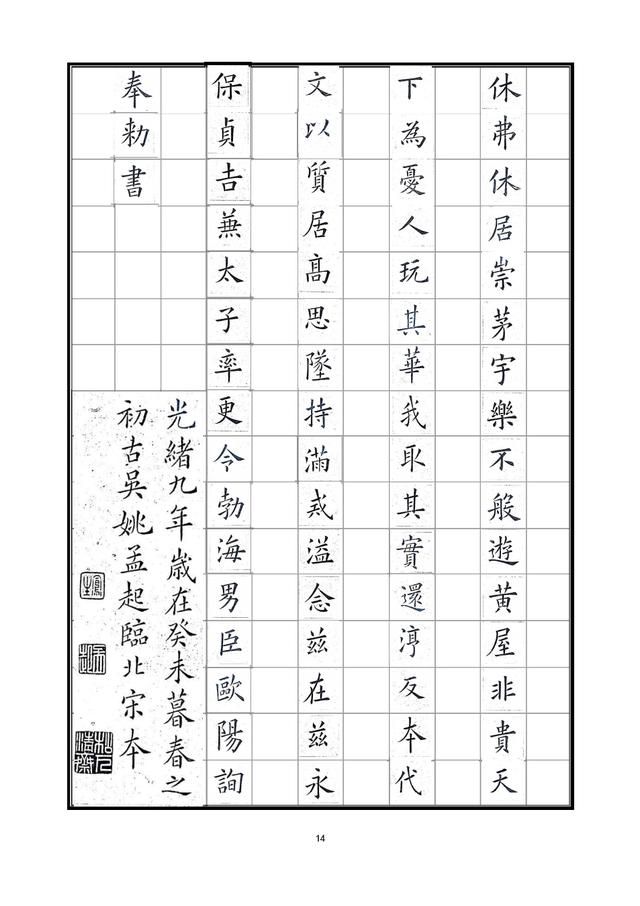 休弗休居崇茅宇樂不般遊黃屋非貴天
下為憂人玩其華我取其實還淳反本代
文以質居高思墜持滿戒溢念兹在兹永
保貞吉兼太子率更令勃海男臣歐陽詢
奉勑書
光緒九年歲在癸未暮春之
初古吳姚孟起臨北宋本
14